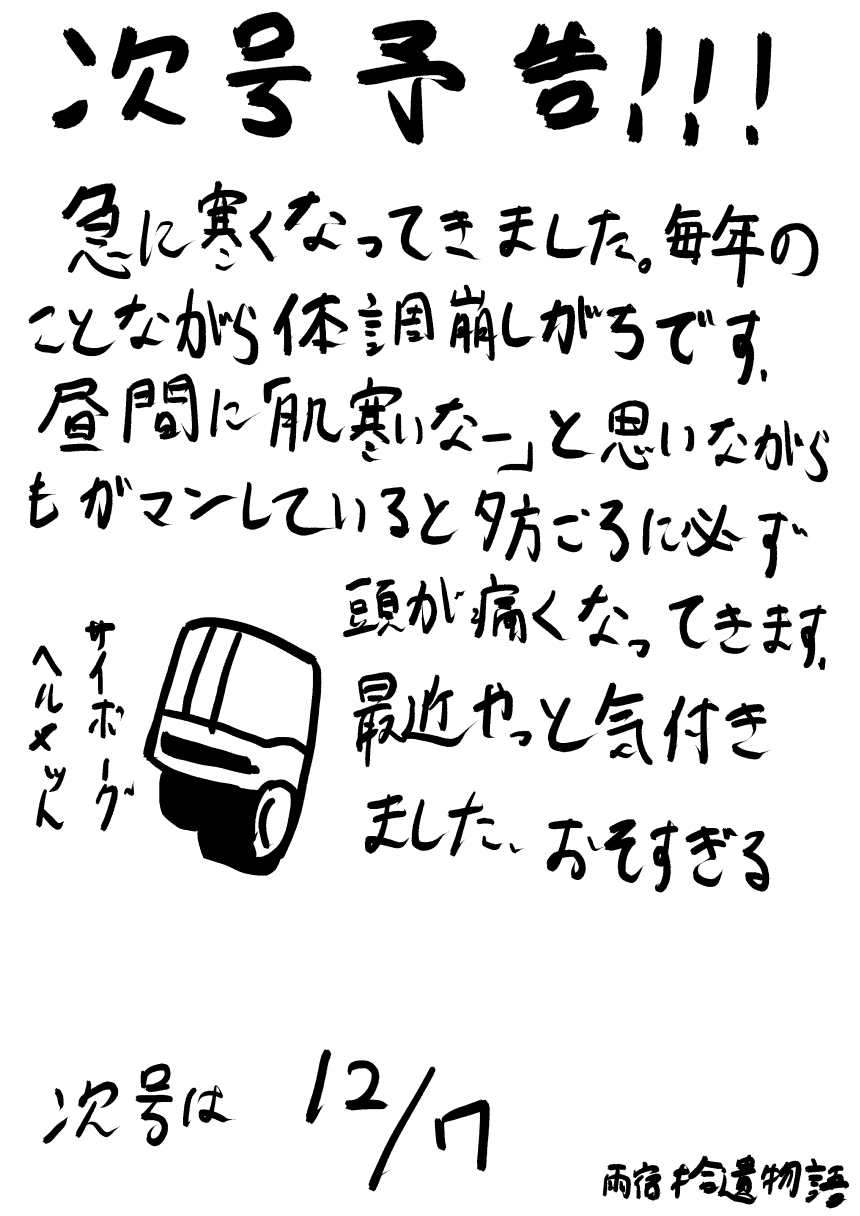 次号予告!!!
急に寒くなってきました。毎年の
ことながら体調崩しがちです、
昼間に「肌寒いなー」と思いながら
もガマンしていると夕方ごろに必ず
頭が痛くなってきます、
最近やっと気付き
ました、おそすぎる
サイボーグ
ヘルメット
次号は 12/7
雨宿拾遺物語